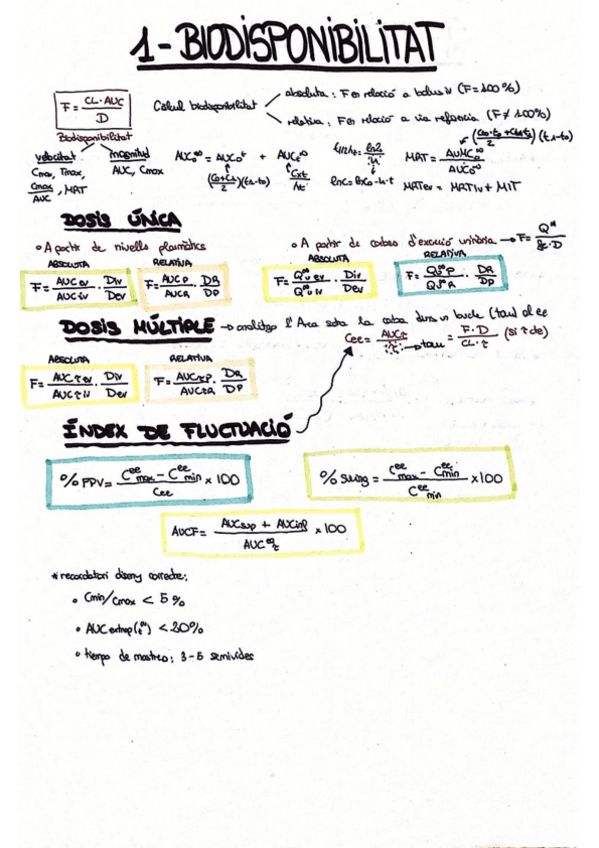 1-BIODISPONIBILITAT
F = CL·AUC / D
Càlcul biodisponibilitat
absoluta: F en relació a bolus iv (F=100%)
relativa: F en relació a via referència (F≠100%)
Biodisponibilitat
velocitat
magnitud
Cmax, Tmax, Cmax/AUC, MAT
AUC, Cmax
AUC₀^∞ = AUC₀^t + AUCt^∞
(C₀+C₁/2)(t₁-t₀)
MAT = AUMC₀^∞ / AUC₀^∞
MATev = MATiv + MIT
DOSIS ÚNICA
A partir de nivells plasmàtics
ABSOLUTA
RELATIVA
F = AUCev/AUCiv · Div/Dev
F = AUCP/AUCR · DR/DP
A partir de corbes d'excreció urinària → F = Q^∞ / fe·D
ABSOLUTA
RELATIVA
F = Q^∞u ev/Q^∞u iv · Div/Dev
F = Q^∞P/Q^∞R · DR/DP
DOSIS MÚLTIPLE → analitzo l'Àrea sota la corba dins un bucle (tau) al ee
Cee = AUCτ/τ → tau = F·D/CL·τ (si τ de)
ABSOLUTA
RELATIVA
F = AUCτev/AUCτiv · Div/Dev
F = AUCτP/AUCτR · DR/DP
ÍNDEX DE FLUCTUACIÓ
% PDV = C^ee max - C^ee min / Cee × 100
% Swing = C^ee max - C^ee min / C^ee min × 100
AUCF = AUCsup + AUCinf / AUC^eq τ × 100
* recordatori disseny correcte:
• Cmin/Cmax < 5%
• AUC extrap (t^∞) < 20%
• tiempo de mostreo: 3-5 semivides